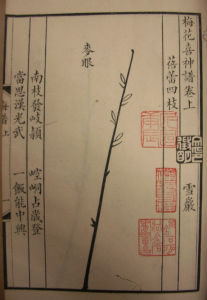 梅花喜神譜卷上
雪巖
蓓蕾四枝
麥眼
南枝發岐穎 崆峒占歲登
當思漢光武 一飯能中興
梅譜上 一